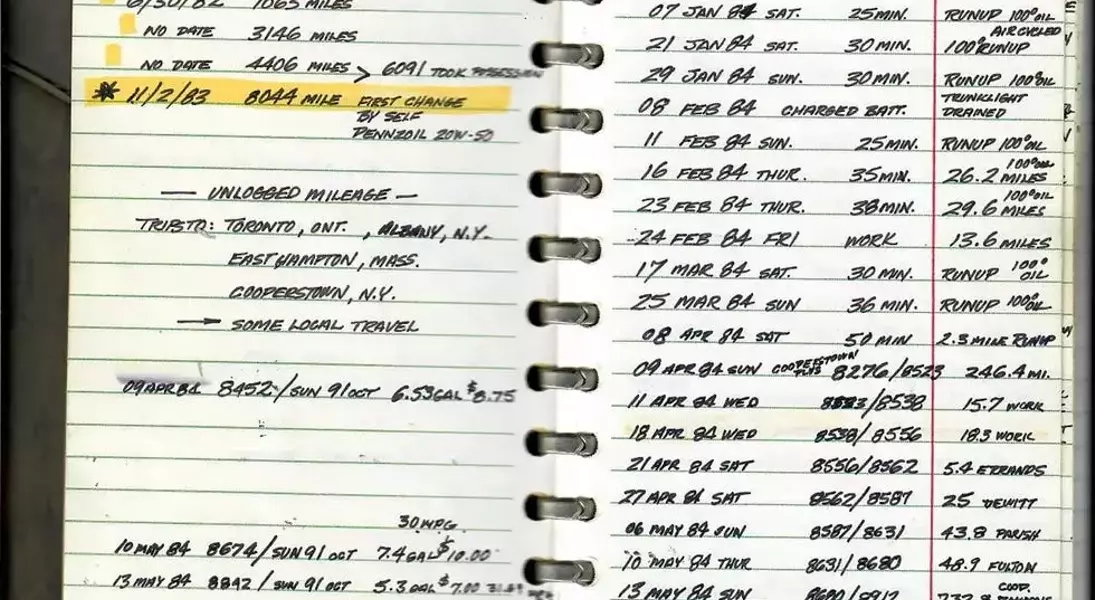 6/30/82 1063 MILES
NO DATE 3146 MILES
NO DATE 4406 MILES > 6091 TOOK POSSESSION
* 11/2/83 8044 MILE FIRST CHANGE
BY SELF
PENNZOIL 20W-50
— UNLOGGED MILEAGE —
TRIPS TO: TORONTO, ONT. , ALBANY, N.Y.
EAST HAMPTON, MASS.
COOPERSTOWN, N.Y.
→ SOME LOCAL TRAVEL
09 APR 84 8452 / SUN 91 OCT 6.53 GAL $8.75
30 MPG
10 MAY 84 8674 / SUN 91 OCT 7.4 GAL $10.00
13 MAY 84 8892 / SUN 91 OCT 5.3 GAL $7.00
07 JAN 84 SAT. 25 MIN. RUNUP 100° OIL
AIR CYCLED
21 JAN 84 SAT. 30 MIN. 100° RUNUP
29 JAN 84 SUN. 30 MIN. RUNUP 100° OIL
08 FEB 84 CHARGED BATT. TRUNKLIGHT
DRAINED
11 FEB 84 SUN. 25 MIN. RUNUP 100° OIL
16 FEB 84 THUR. 35 MIN. 26.2 MILES 100° OIL
23 FEB 84 THUR. 38 MIN. 29.6 MILES 100° OIL
24 FEB 84 FRI WORK 13.6 MILES
17 MAR 84 SAT. 30 MIN. RUNUP 100° OIL
25 MAR 84 SUN 36 MIN. RUNUP 100° OIL
08 APR 84 SAT 50 MIN 2.3 MILE RUNUP
09 APR 84 SUN COOPERSTOWN 8276/8523 246.4 MI.
11 APR 84 WED 8523/8538 15.7 WORK
18 APR 84 WED 8538/8556 18.3 WORK
21 APR 84 SAT 8556/8562 5.4 ERRANDS
27 APR 84 SAT 8562/8587 25 DEWITT
06 MAY 84 SUN 8587/8631 43.8 PARISH
10 MAY 84 THUR 8631/8680 48.9 FULTON
13 MAY 84 SUN 8680/8912 COOP.